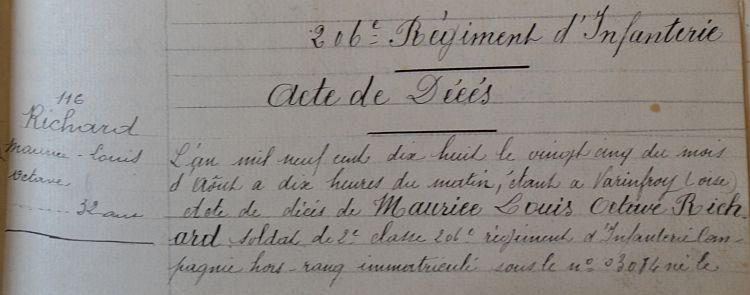 206e Régiment d'Infanterie
Acte de Décés
116
Richard
Maurice - Louis
Octave
32 ans
L'an mil neuf cent dix huit le vingt cinq du mois
d'Août a dix heures du matin, étant a Varinfroy (oise)
Acte de décés de Maurice Louis Octave Rich
ard soldat de 2e classe 206e régiment d'Infanterie Com-
pagnie hors-rang immatriculé sous le no 03014 né le